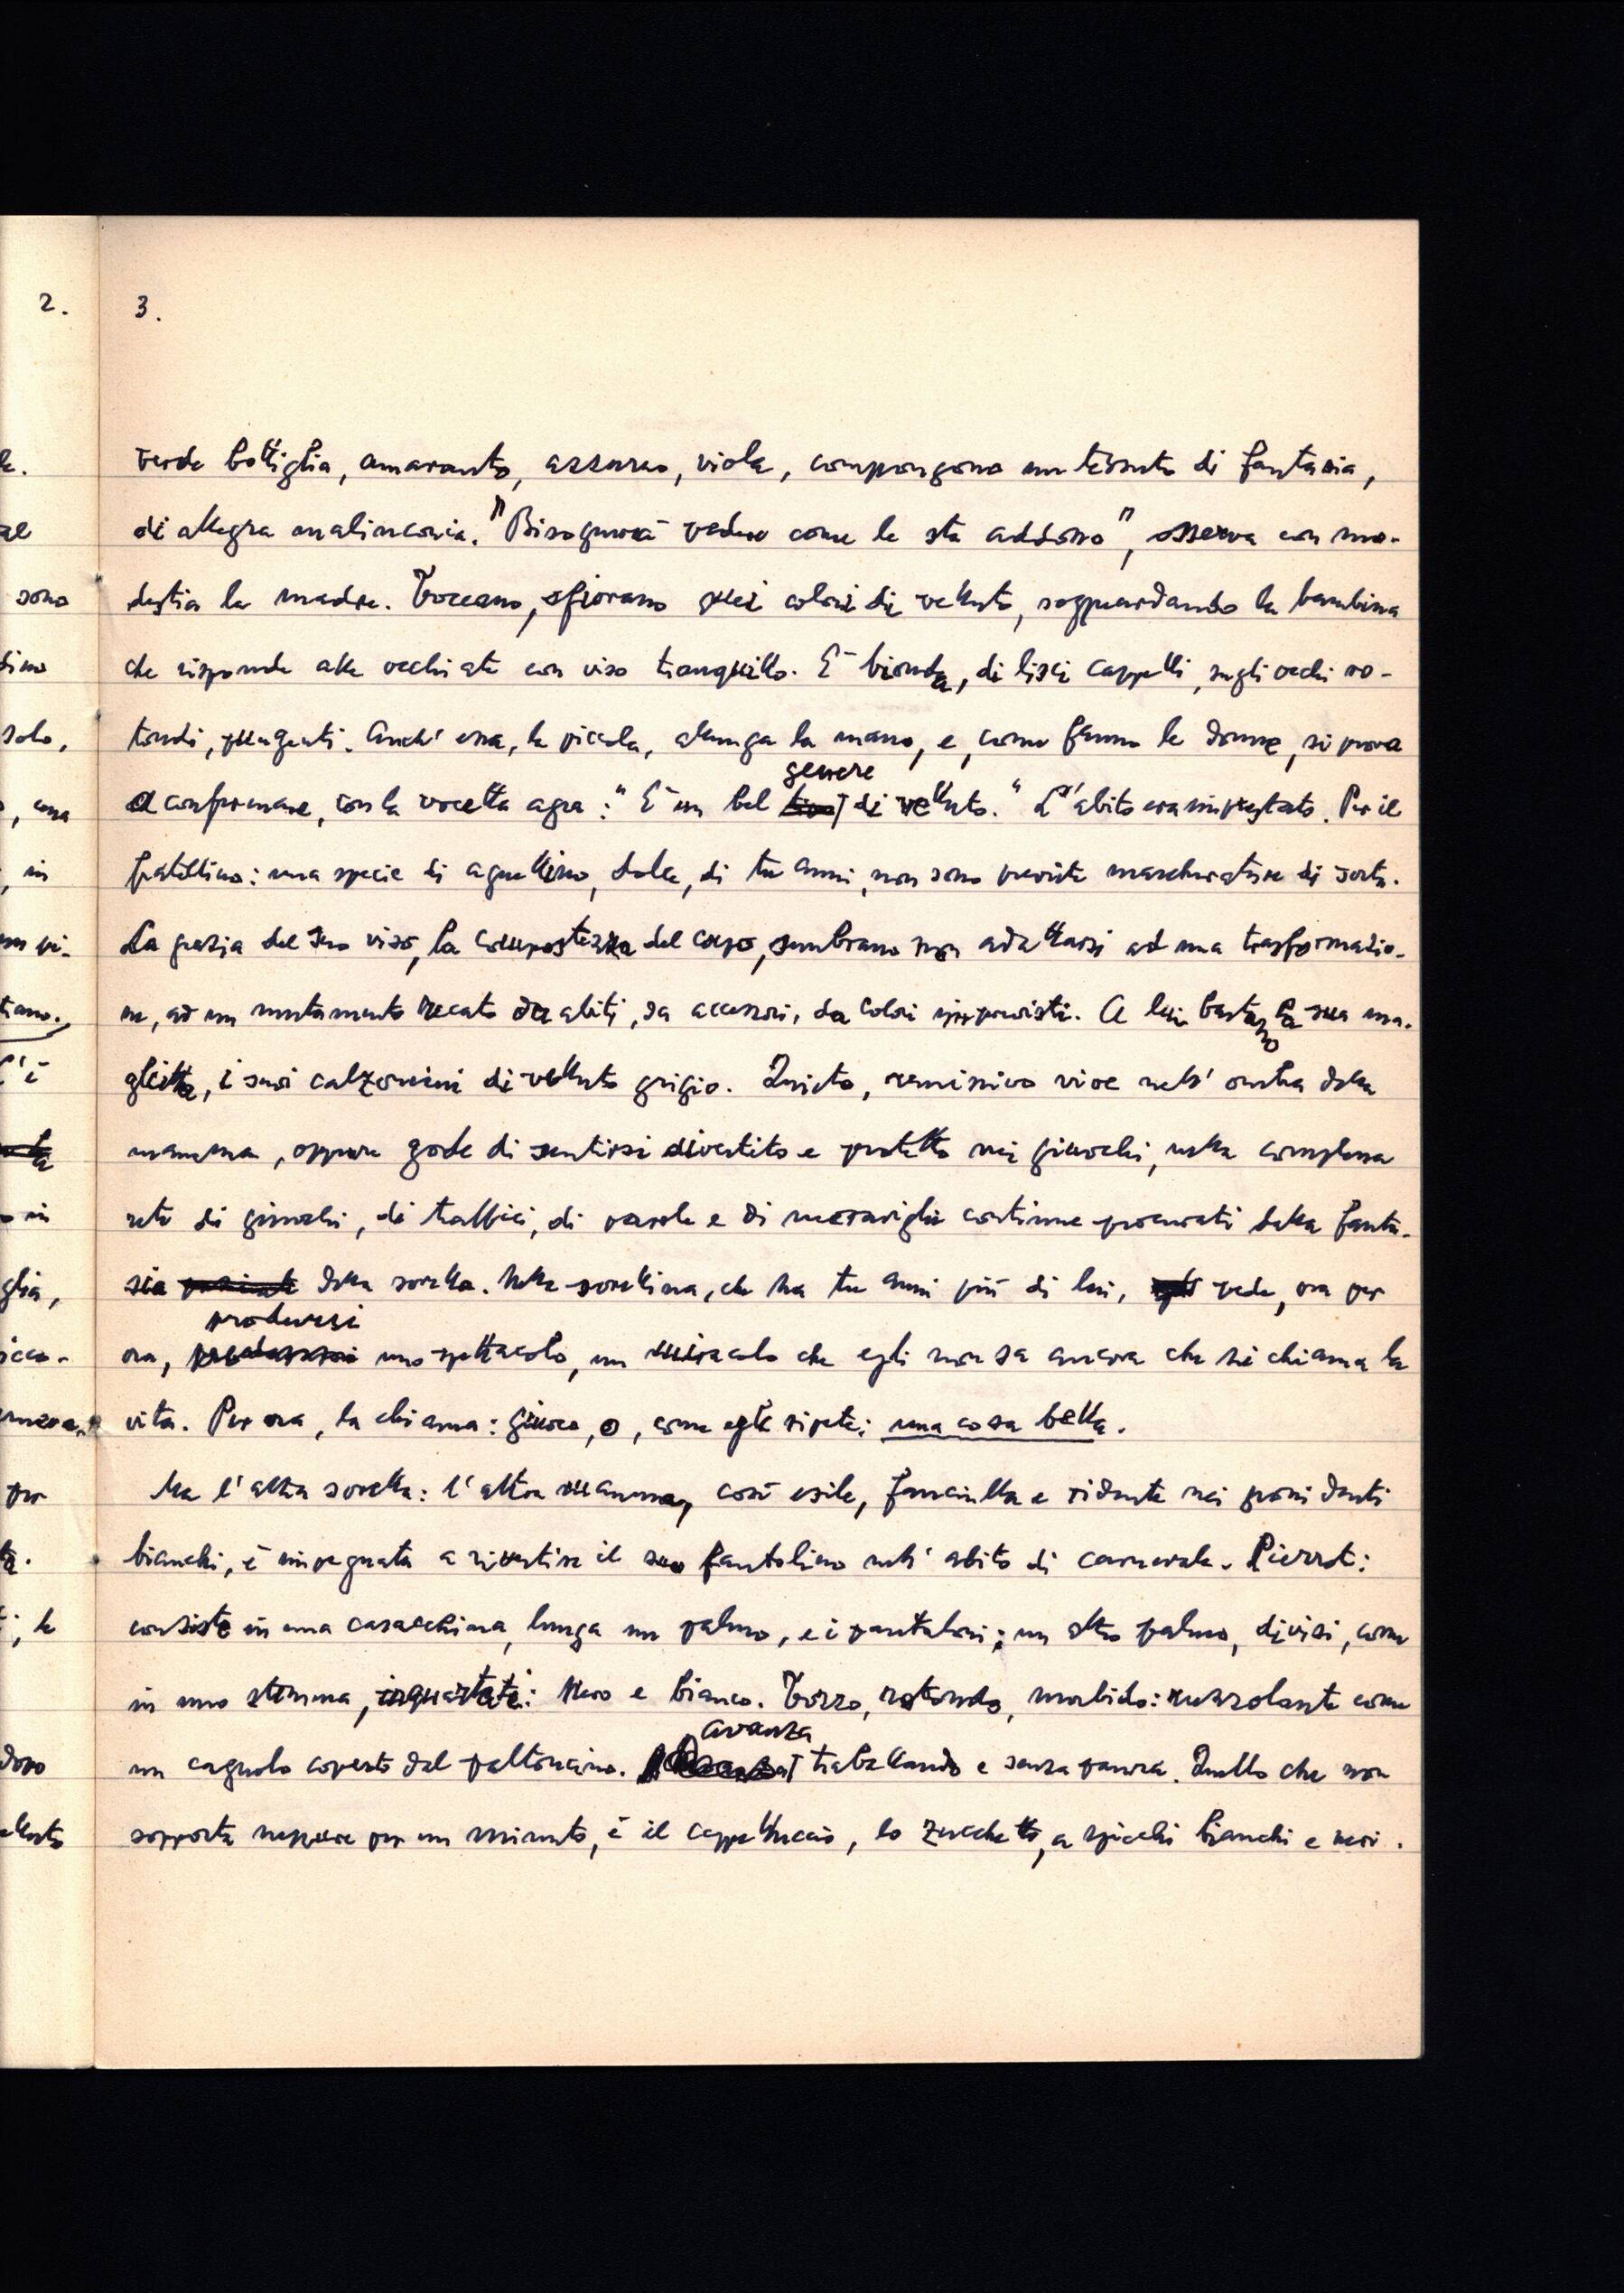 2.
3.
verde bottiglia, amaranto, azzurro, viola, compongono un tessuto di fantasia,
di allegra malinconia. "Bisognerà vedere come le sta addosso", osserva con mo-
destia la madre. Toccano, sfiorano quei colori di velluto, sogguardando la bambina
che risponde alle occhiate con viso tranquillo. È bionda, di lisci cappelli, sugli occhi ro-
tondi, pungenti. Anch' essa, la piccola, allunga la mano, e, come fanno le donne, si prova
a confermare, con la vocetta agra: "È un bel genere di velluto." L'abito era impuntato. Per il
fratellino: una specie di agnellino, dolce, di tre anni, non sono previste mascherature di sorta.
La grazia del suo viso, la compostezza del corpo, sembrano non adattarsi ad una trasformazio-
ne, ad un mutamento recato da abiti, da accessori, da colori imprevisti. A lui bastano la sua ma-
glietta, i suoi calzoncini di velluto grigio. Quieto, remissivo vive nell' ombra della
mamma, oppure gode di sentirsi divertito e protetto nei giuochi, nella complessa
rete di giuochi, di traffici, di parole e di meraviglie continue procurati dalla fanta-
sia della sorella. Nella sorellina, che ha tre anni più di lui, vede, ora per
ora, prodursi uno spettacolo, un miracolo che egli non sa ancora che si chiama la
vita. Per ora, la chiama: giuoco, o, come egli ripete: una cosa bella.
Ma l'altra sorella: l'altra mamma, così esile, fanciulla e ridente nei grani denti
bianchi, è impegnata a rivestire il suo fantolino nell' abito di carnevale. Pierrot:
consiste in una casacchina, lunga un palmo, e i pantaloni; un altro palmo, divisi, come
in uno stemma, inquartati: nero e bianco. Tozzo, rotondo, morbido: ruzzolante come
un cagnolo coperto dal paltoncino. avanza traballando e senza paura. Quello che non
sopporta neppure per un minuto, è il cappelluccio, lo zucchetto, a spicchi bianchi e neri.